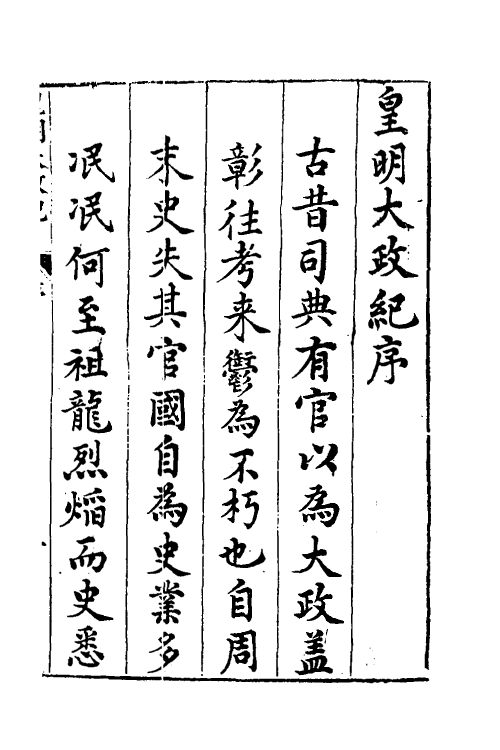 皇明大政紀序
古昔司典有官以為大政盖
彰往考来鬱為不朽也自周
末史失其官國自為史業多
泯泯何至祖龍烈焰而史悉